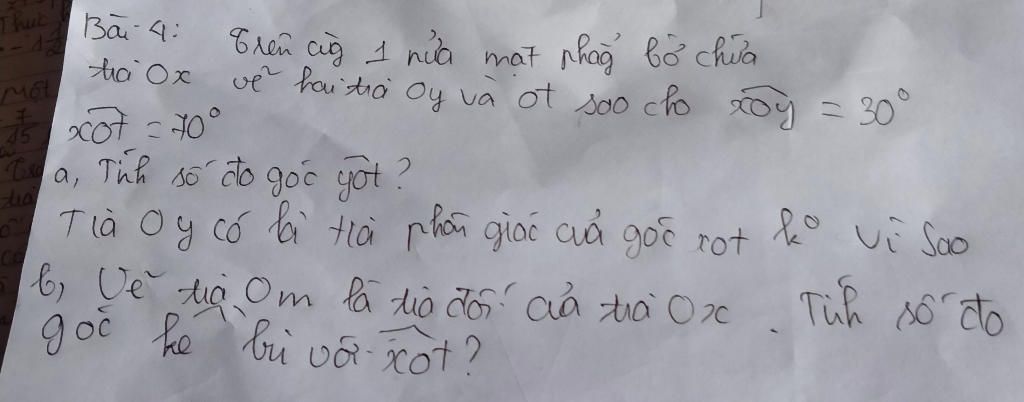 Bài 4: Trên cùg 1 nửa mặt phẳg bờ chứa
tia Ox vẽ hai tia Oy và ot sao cho xoy = 30°
xot = 70°
a, Tính số đo góc yot?
Tià Oy có là tia phân giác của góc xot k° vì sao
b, Vẽ tia Om là tia đối của tia Ox. Tính số đo
góc kề bù với xot?